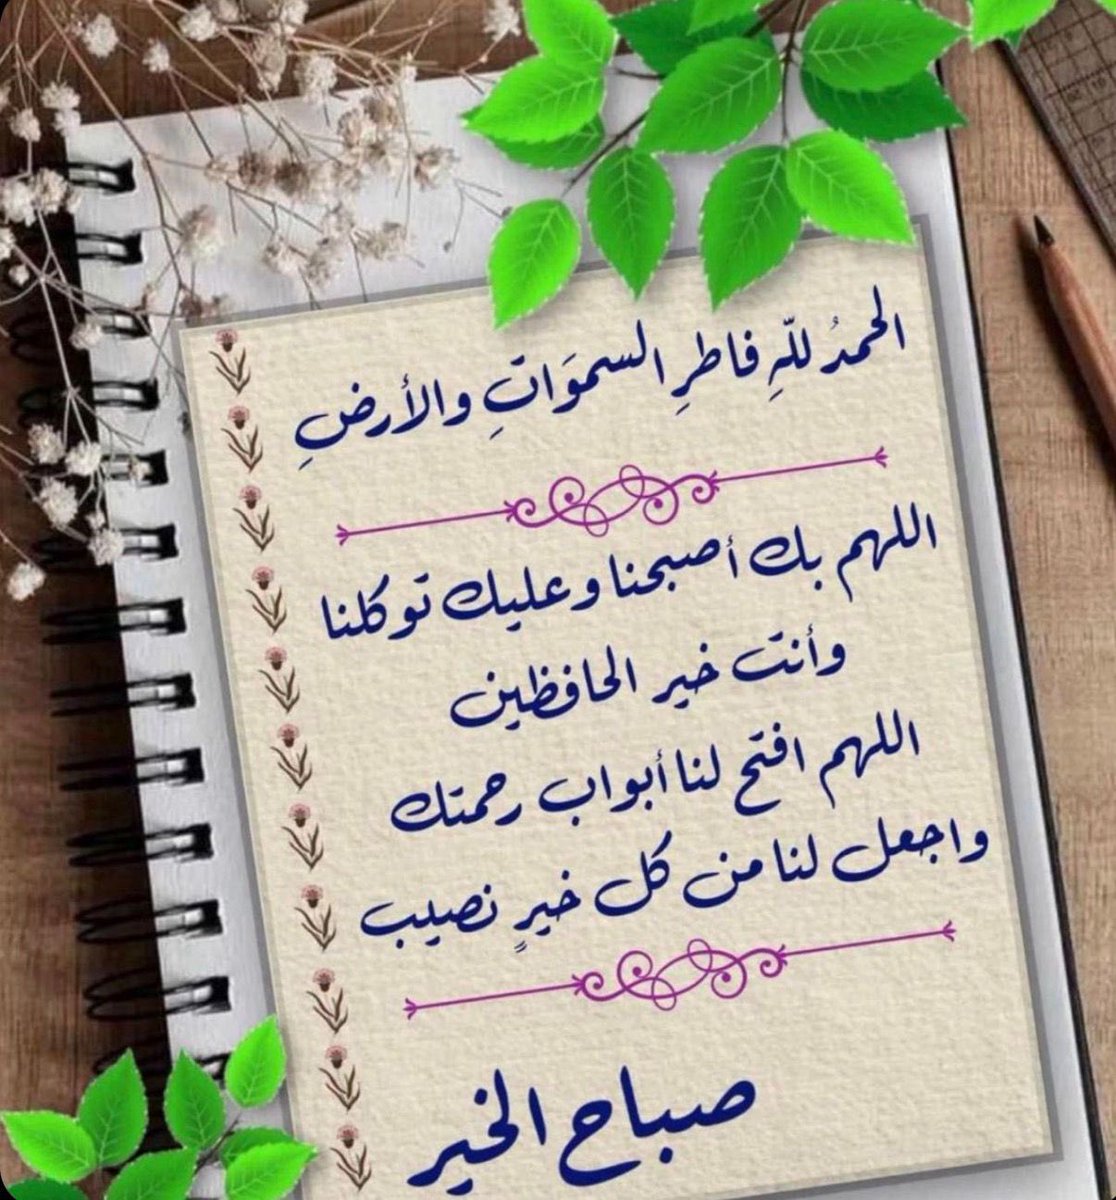 الحمدُ للّهِ فاطرِ السموَاتِ والأرضِ
اللهم بك أصبحنا وعليك توكلنا
وأنت خير الحافظين
اللهم افتح لنا أبواب رحمتك
واجعل لنا من كل خيرٍ نصيب
صباح الخير